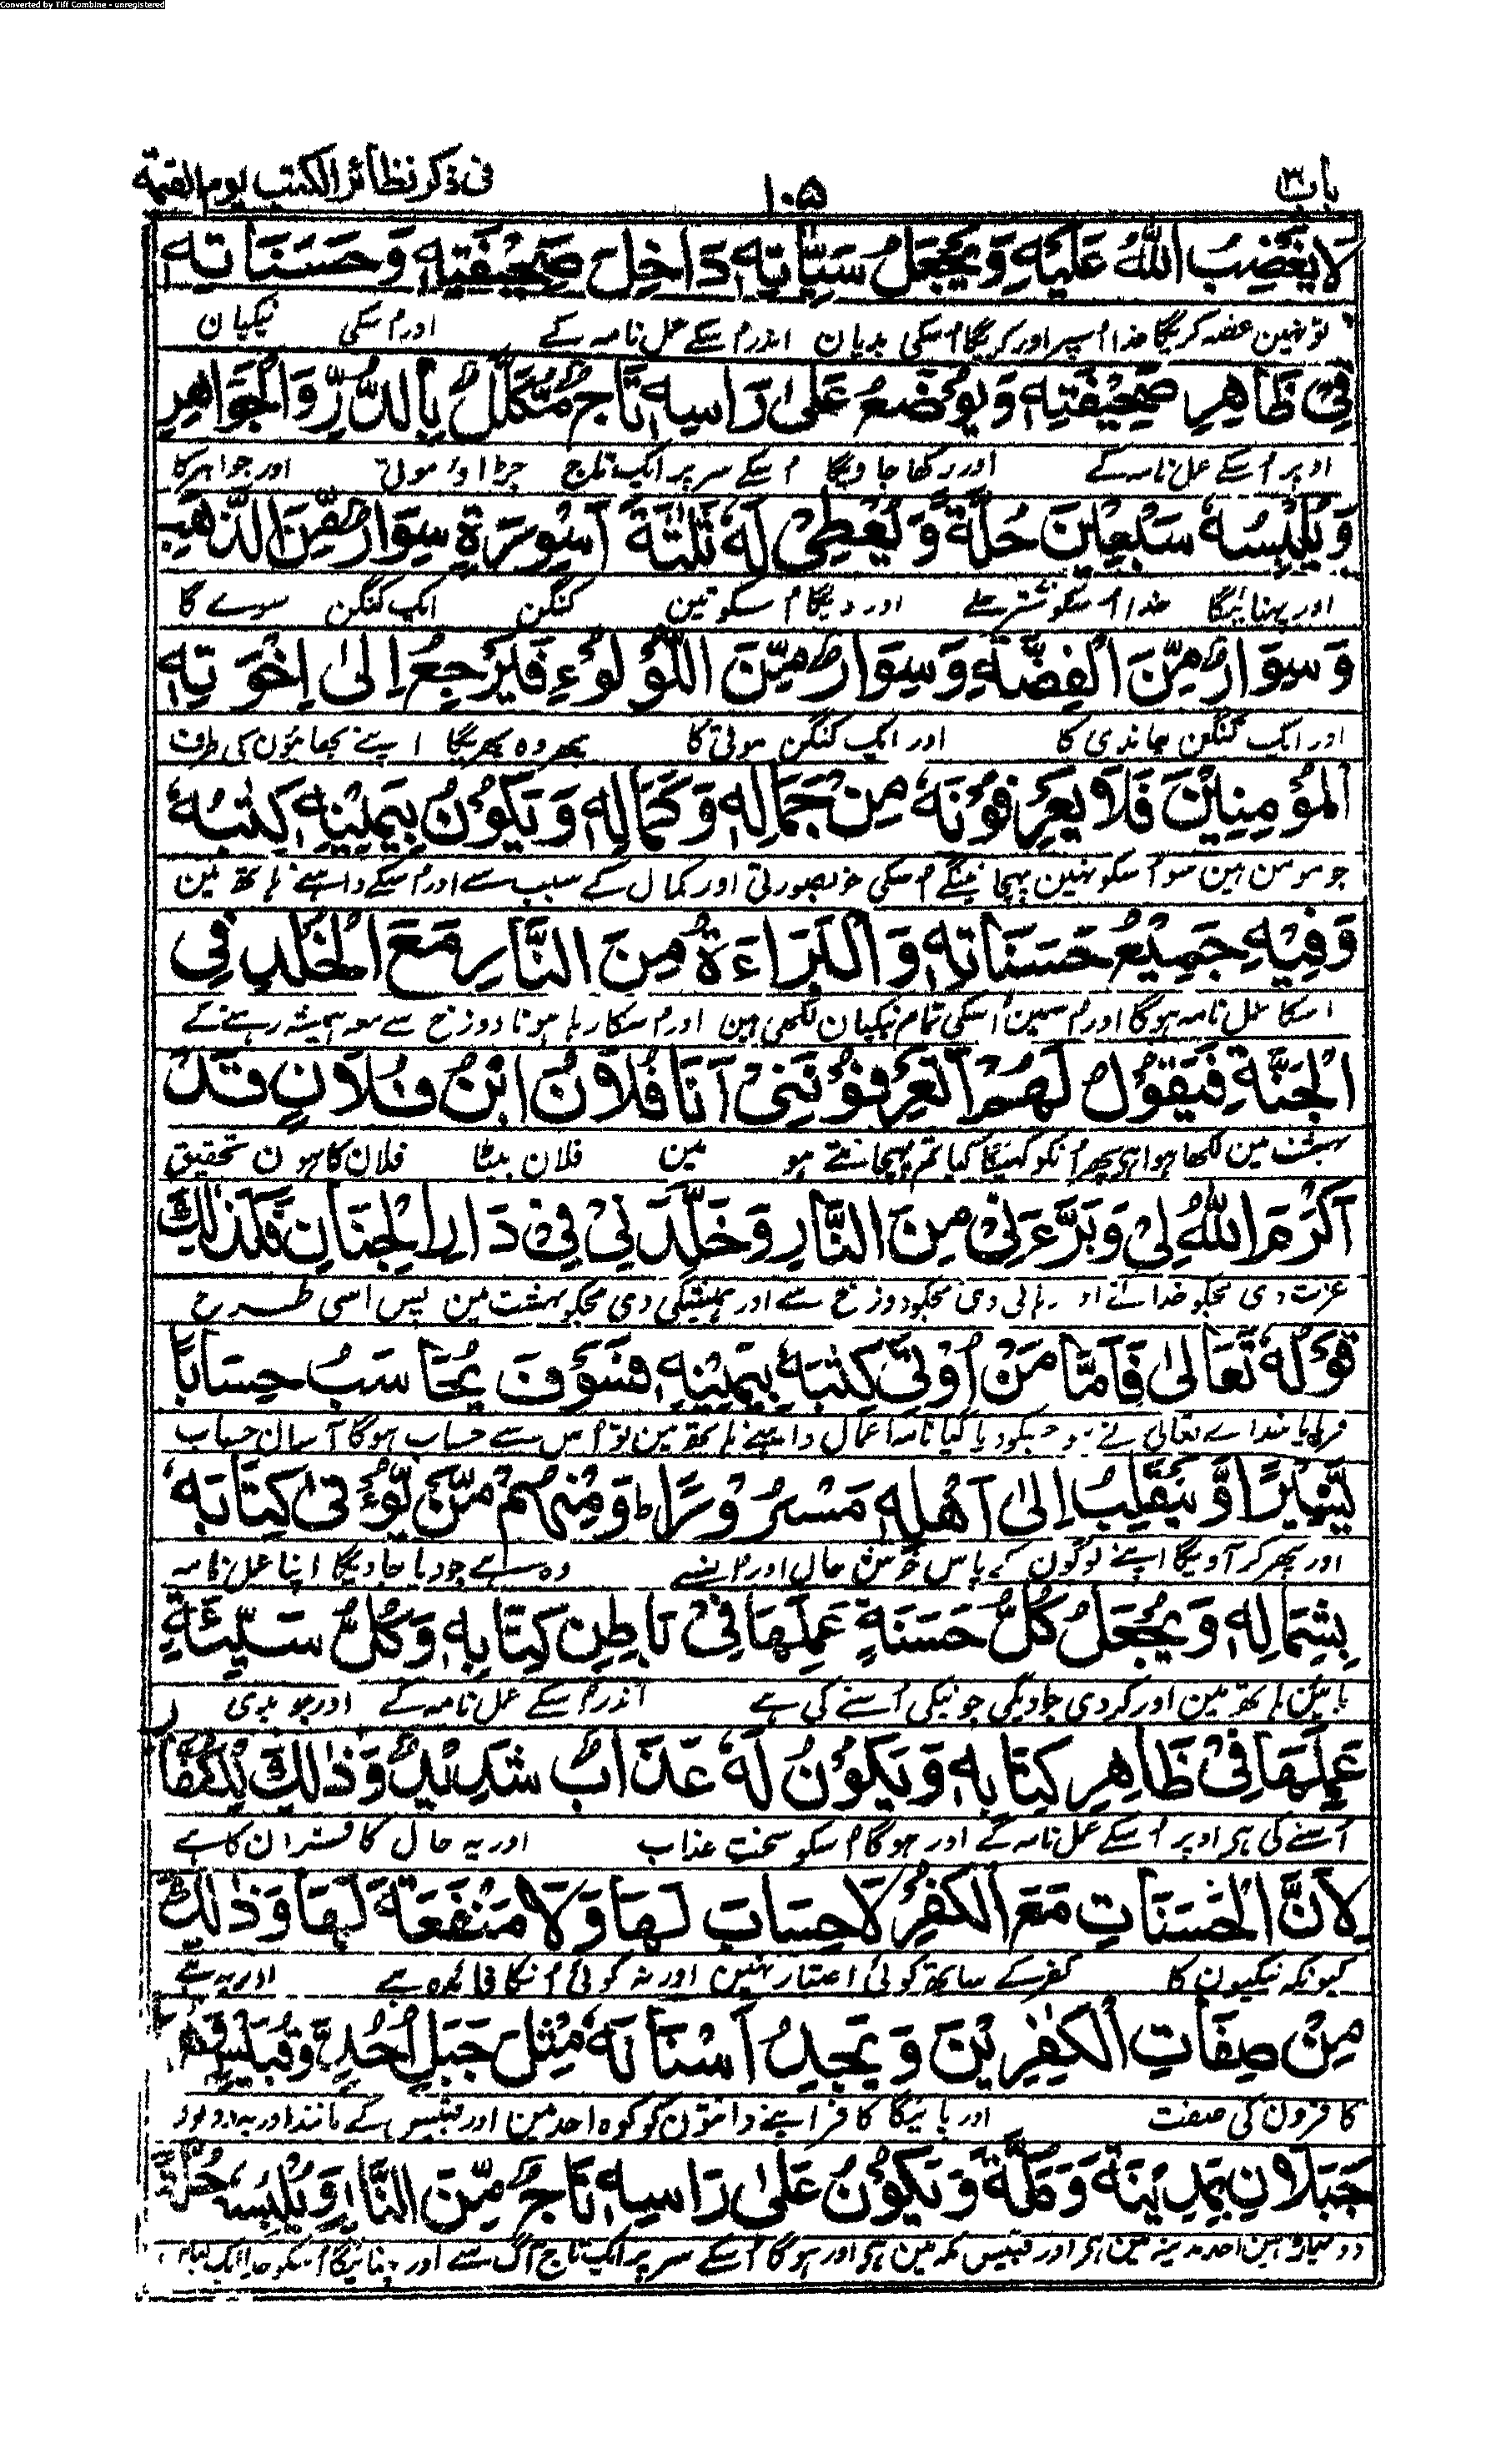 Converted by Tiff Combine - unregistered
باب ٣ ١٠٥ فى ذكر نظائر الكتب يوم القيمة
لَا يَغْضِبُ اللّٰهُ عَلَيْهِ وَيَجْعَلُ سَيِّاٰتِهٖ دَاخِلَ صَحِيْفَتِهٖ وَحَسَنَاتِهٖ
تو نہین غصہ کریگا خدا اسپر اور کریگا اسکی بدیان اندر اسکے عمل نامہ کے اور اسکی نیکیان
فِيْ ظَاهِرِ صَحِيْفَتِهٖ وَيُوْضَعُ عَلٰى رَاسِهٖ تَاجٌ مُّكَلَّلٌ بِالدُّرِّ وَالْجَوَاهِرِ
اوپر اسکے عمل نامہ کے اور رکھا جاویگا اسکے سر پر ایک تاج جڑا ہوا موتی اور جواہر کا
وَيُلْبِسُهٗ سَبْعِيْنَ حُلَّةً وَّيُعْطِىْ لَهٗ ثَلٰثَةَ اَسْوِرَةٍ سِوَارٌ مِّنَ الذَّهَبِ
اور پہنائیگا خدا اسکو ستر حلے اور دیگا اسکو تین کنگن ایک کنگن سونے کا
وَسِوَارٌ مِّنَ الْفِضَّةِ وَسِوَارٌ مِّنَ اللُّؤْلُوْءِ فَيَرْجِعُ اِلٰى اِخْوَتِهٖ
اور ایک کنگن چاندی کا اور ایک کنگن موتی کا پھر وہ پھریگا اپنے بھائیون کی طرف
الْمُؤْمِنِيْنَ فَلَا يَعْرِفُوْنَهٗ مِنْ جَمَالِهٖ وَكَمَالِهٖ وَيَكُوْنُ بِيَمِيْنِهٖ كِتٰبُهٗ
جو مومن ہین سو اسکو نہین پہچانینگے اسکی خوبصورتی اور کمال کے سبب سے اور اسکے داہنے ہاتھ مین
وَفِيْهِ جَمِيْعُ حَسَنَاتِهٖ وَالْبَرَاءَةُ مِنَ النَّارِ مَعَ الْخُلْدِ فِى
اسکا عمل نامہ ہوگا اور اسمین اسکی تمام نیکیان لکھی ہین اور اسکا رہا ہونا دوزخ سے معہ ہمیشہ رہنے کے
الْجَنَّةِ فَيَقُوْلُ لَهُمْ اَتَعْرِفُوْنَنِىْ اَنَا فُلَانُ ابْنُ فُلَانٍ قَدْ
بہشت مین لکھا ہوا ہی پھر انکو کہیگا کیا تم پہچانتے ہو مین فلان بیٹا فلان کا ہون تحقیق
اَكْرَمَ اللّٰهُ لِىْ وَبَرَّءَنِىْ مِنَ النَّارِ وَخَلَّدَنِىْ فِىْ دَارِ الْجِنَانِ فَلِذٰلِكَ
عزت دی مجکو خدا نے اور رہائی دی مجکو دوزخ سے اور ہمیشگی دی مجکو بہشت مین پس اسی طرح
قَوْلُهٗ تَعَالٰى فَاَمَّا مَنْ اُوْتِىَ كِتٰبَهٗ بِيَمِيْنِهٖ فَسَوْفَ يُحَاسَبُ حِسَابًا
فرمایا خداے تعالی نے جسکو دیا گیا نامہ اعمال داہنے ہاتھ مین تو اس سے حساب ہوگا آسان حساب
يَّسِيْرًا وَّيَنْقَلِبُ اِلٰى اَهْلِهٖ مَسْرُوْرًا ط وَمِنْهُمْ مَّنْ يُّؤْتٰى كِتَابَهٗ
اور پھر کر آویگا اپنے لوگون کے پاس خوش حال اور انسے وہ ہے جو دیا جاویگا اپنا عمل نامہ
بِشِمَالِهٖ وَيُجْعَلُ كُلُّ حَسَنَةٍ عَمِلَهَا فِىْ بَاطِنِ كِتَابِهٖ وَكُلُّ سَيِّئَةٍ
بائین ہاتھ مین اور کردی جاویگی جو نیکی اسنے کی ہے اندر اسکے عمل نامہ کے اور جو بدی
عَمِلَهَا فِىْ ظَاهِرِ كِتَابِهٖ وَيَكُوْنُ لَهٗ عَذَابٌ شَدِيْدٌ وَذٰلِكَ لِلْكُفَّارِ
اسنے کی ہی اوپر اسکے عمل نامہ کے اور ہوگا اسکو سخت عذاب اور یہ حال کافران کا ہے
لِاَنَّ الْحَسَنَاتِ مَعَ الْكُفْرِ لَا حِسَابَ لَهَا وَلَا مَنْفَعَةَ لَهَا وَذٰلِكَ
کیونکہ نیکیون کا کفر کے ساتھ کوئی اعتبار نہین اور نہ کوئی انکا فائدہ ہے اور یہ ہے
مِنْ صِفَاتِ الْكٰفِرِيْنَ وَيَجِدُ اَسْنَانَهٗ مِثْلَ جَبَلِ اُحُدٍ وَّقُبَيْسٍ
کافرون کی صفت اور پائیگا کافر اپنے دانتون کو کوہ احد مین اور قبیس کے مانند اور یہ دونو
جَبَلَانِ بِمَدِيْنَةَ وَمَكَّةَ وَيَكُوْنُ عَلٰى رَاسِهٖ تَاجٌ مِّنَ النَّارِ وَيُلْبِسُهٗ حُلَّةً
دو پہاڑ ہین احد مدینہ مین ہی اور قبیس مکہ مین ہی اور ہوگا اسکے سر پر ایک تاج آگ سے اور پہنائیگا اسکو